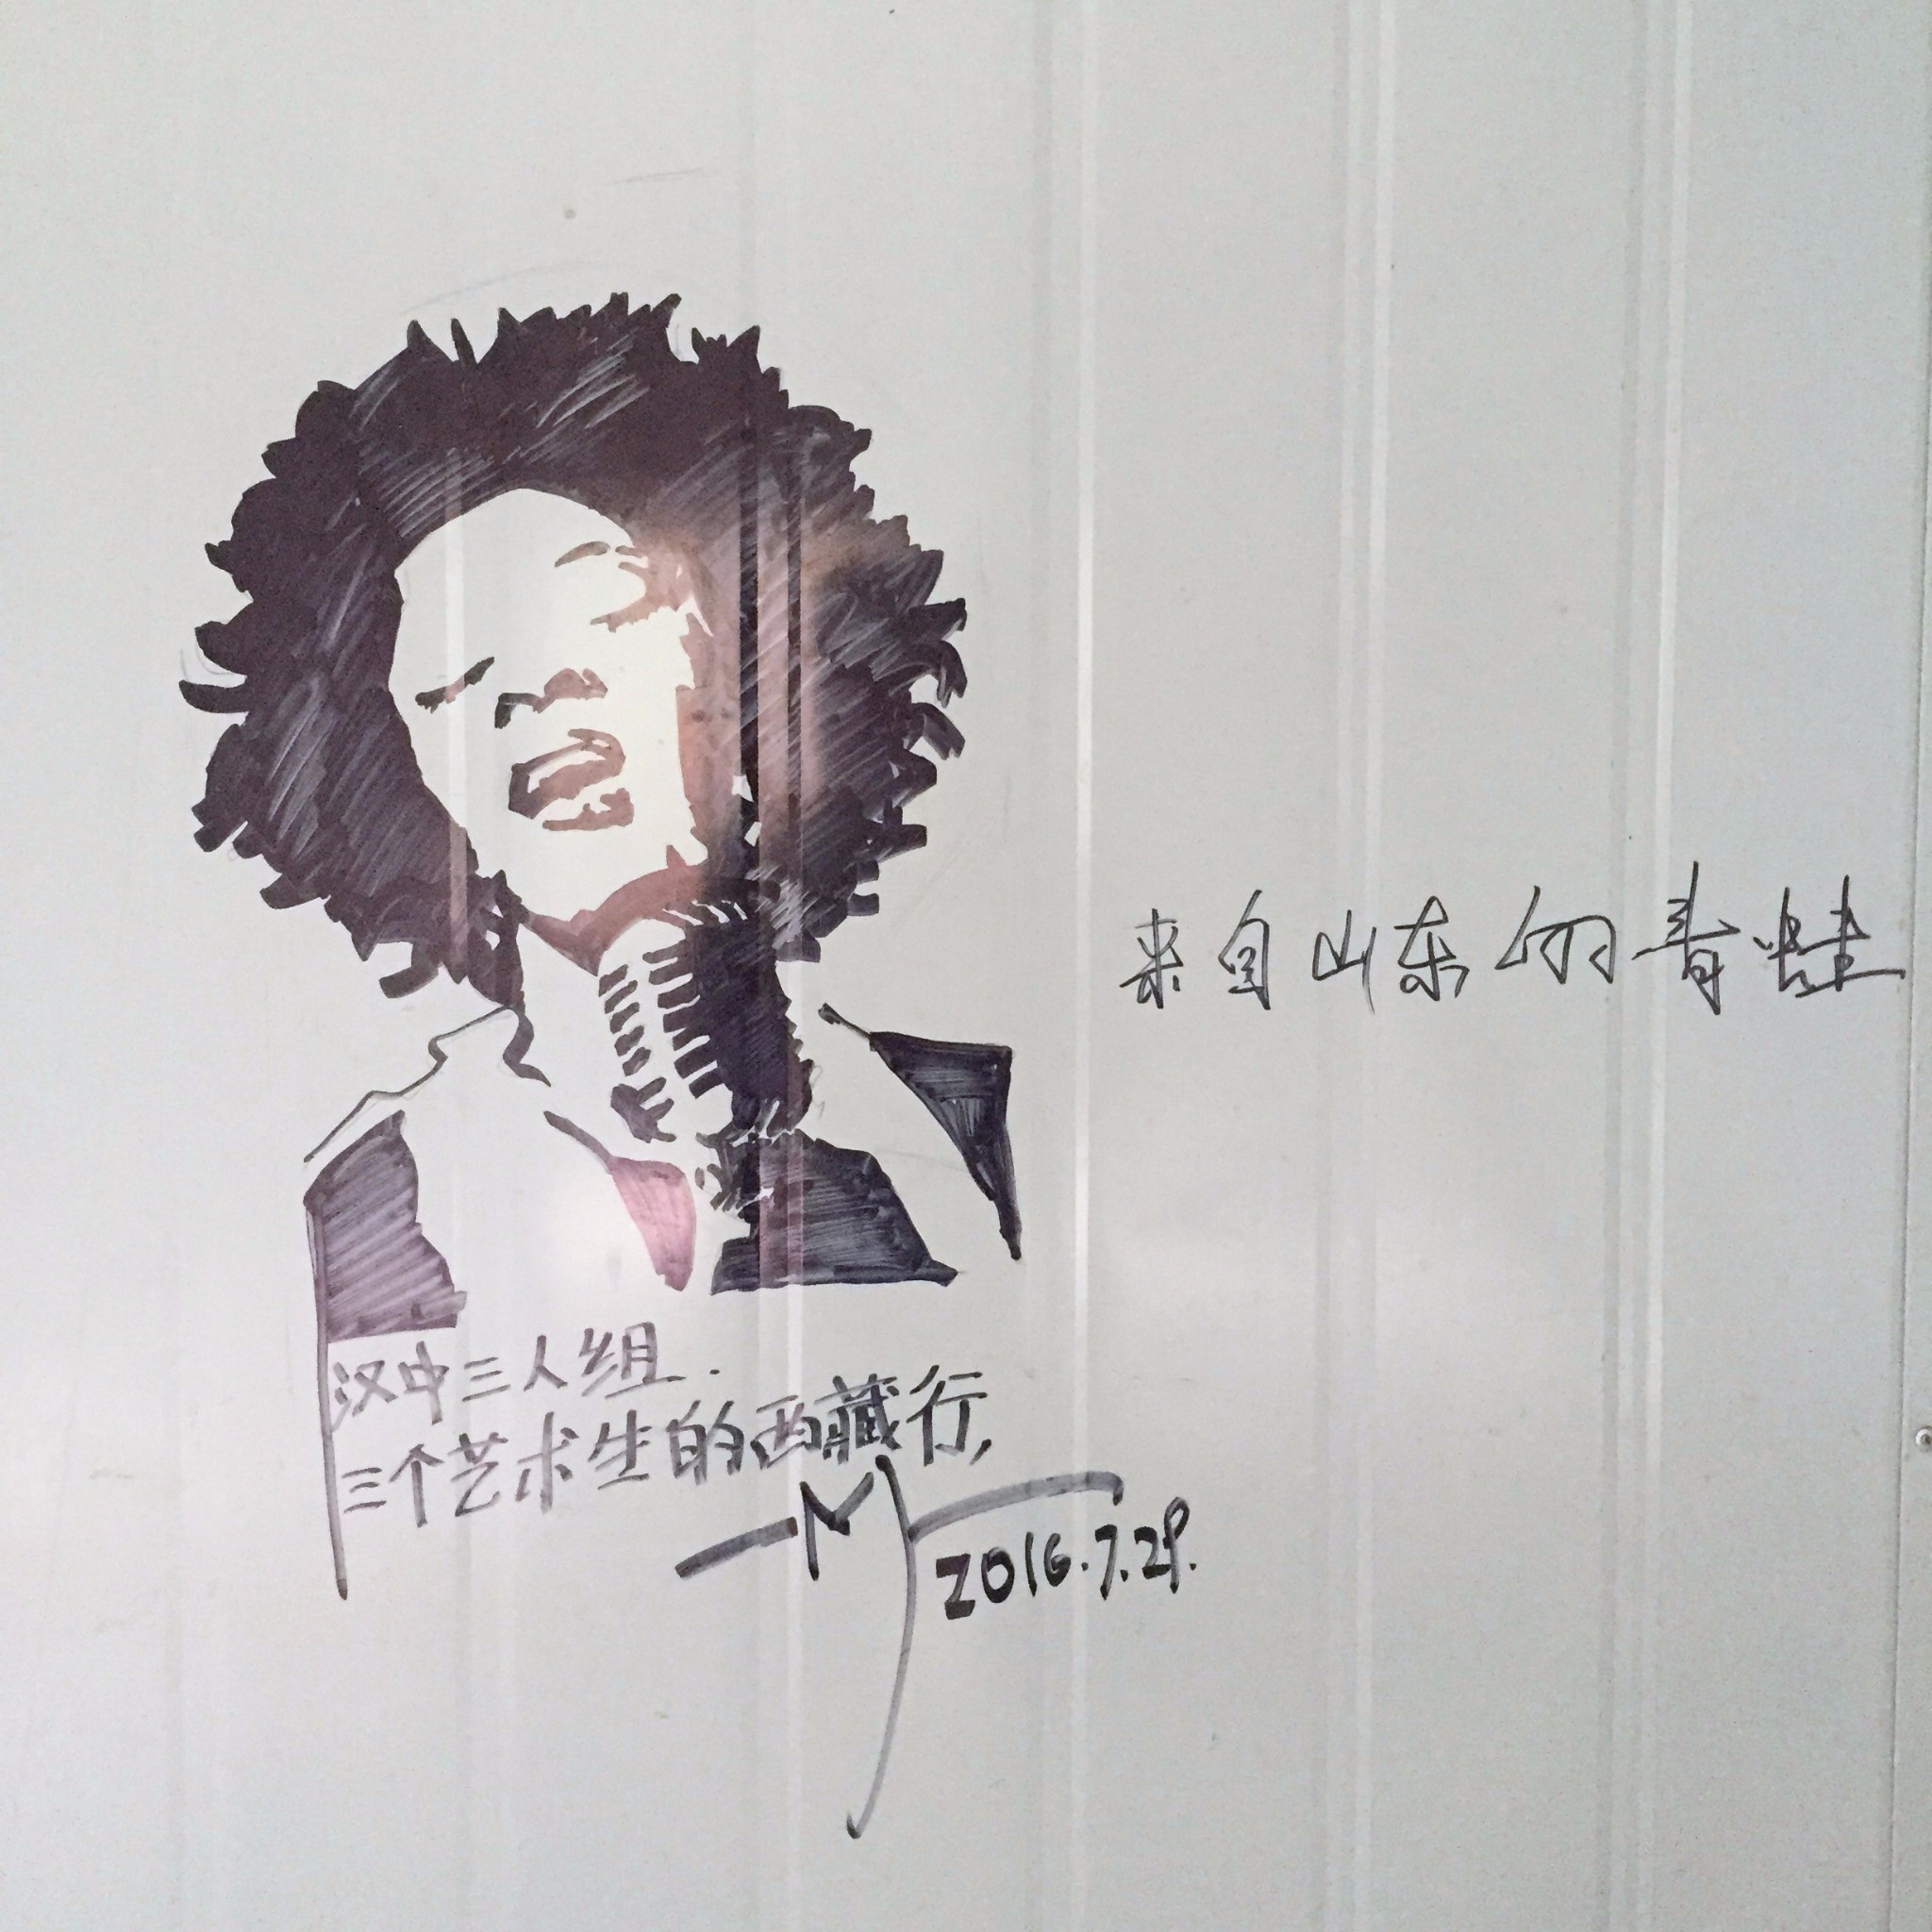 来自山东的青蛙
汉中三人组.
三个艺术生的西藏行,
2016.7.29.